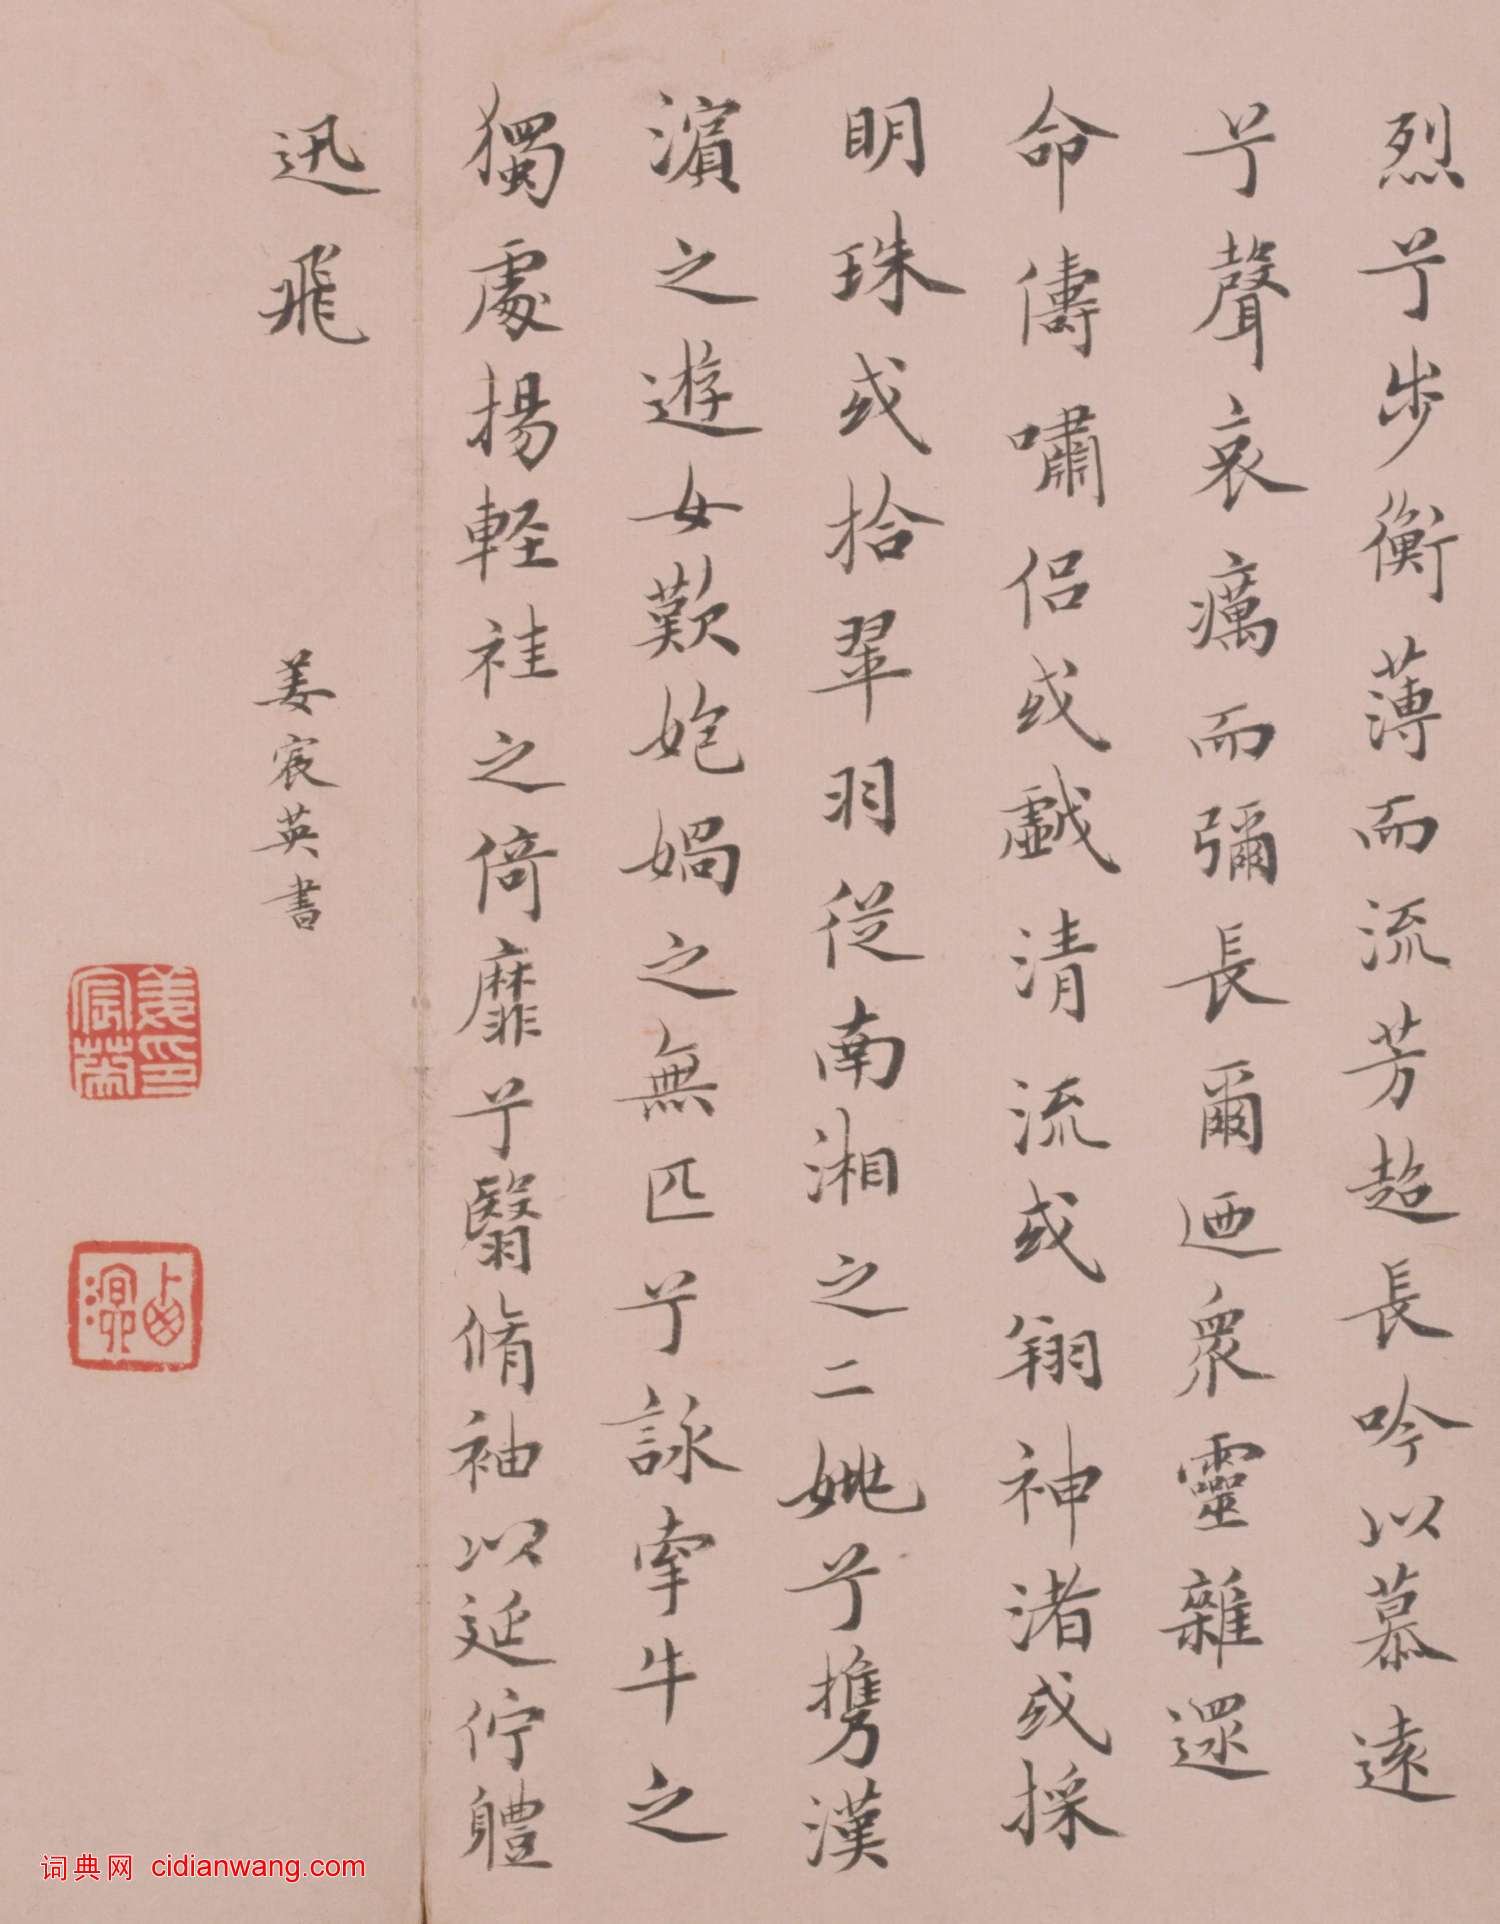 烈兮步衡薄而流芳超長吟以慕遠
兮聲哀癘而彌長爾迺衆靈雜遝
命儔嘯侶或戲清流或翔神渚或採
明珠或拾翠羽從南湘之二姚兮攜漢
濱之遊女歎㚿媧之無匹兮詠牽牛之
獨處揚軽袿之倚靡兮翳脩袖以延佇體
迅飛
姜宸英書
姜宸英印
西溟
词典网 cidianwang.com